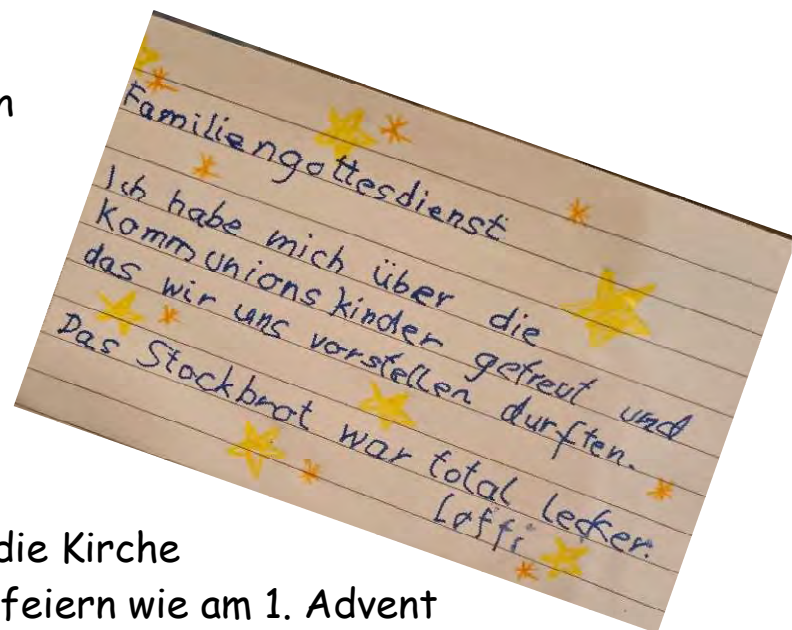 n
Familiengottesdienst
Ich habe mich über die
Kommunionskinder gefreut und
das wir uns vorstellen durften.
Das Stockbrot war total lecker.
Løffi
die Kirche
feiern wie am 1. Advent